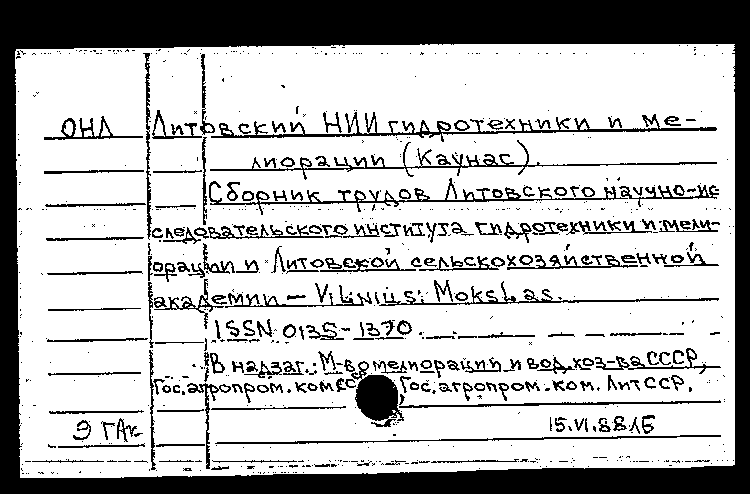 ОНЛ Литовский НИИ гидротехники и ме-
лиорации (Каунас).
Сборник трудов Литовского научно-ис
следовательского института гидротехники и мели-
орации и Литовской сельскохозяйственной
академии – Vilnius: Mokslas.
ISSN 0135-1370.
В надзаг.: М-во мелиорации и вод.хоз-ва СССР,
Гос.агропром.ком Гос.агропром.ком. ЛитССР.
15.VI.88